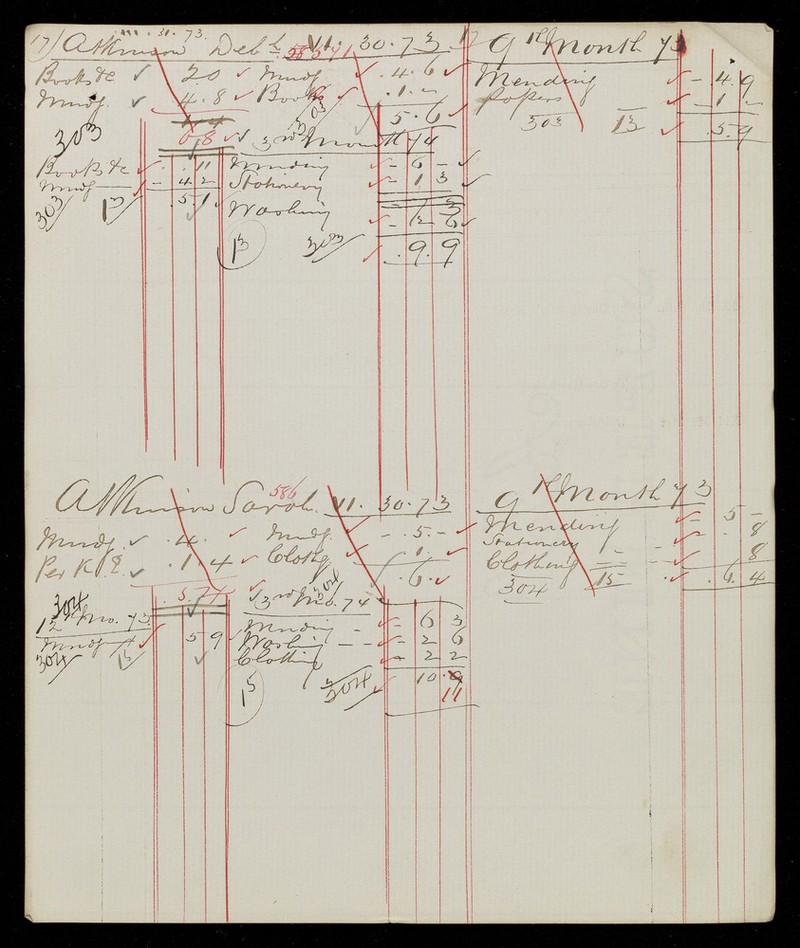 17) Atkinson Deb
VI. 31. 73.
Books &c 20
Mendg. 4.8
6 8
303
Books &c . 11
Mendg - 4 2
. 5 1
303 13
585 VI. 30. 73
Mendg . 4. 6
Books . 1. -
5. 6
303
3rd Month 74
Mending - 6 -
Stationery - 1 3
- 7 3
Washing - 2 6
13 303 . 9. 9
17 9th Month 73
Mending - 4. 9
Papers - 1 -
303 13 . 5. 9
Atkinson Sarah. 586
Mendg . 4.
Per K . 1. 4
. 5. 4
304
12th Mo. 73
Mendg 5 9
304 15
VI. 30. 73
Mendg. - . 5. -
Clothg . 1.
. 6.
304
3rd Mo. 74
Mending - 6 3
Washing - - 2 6
Clothing 2 2
15 304 10. 9
11
9th Month 73
Mending - 5 -
Stationery - . 8
Clothing - - . 8
304 15 . 6. 4